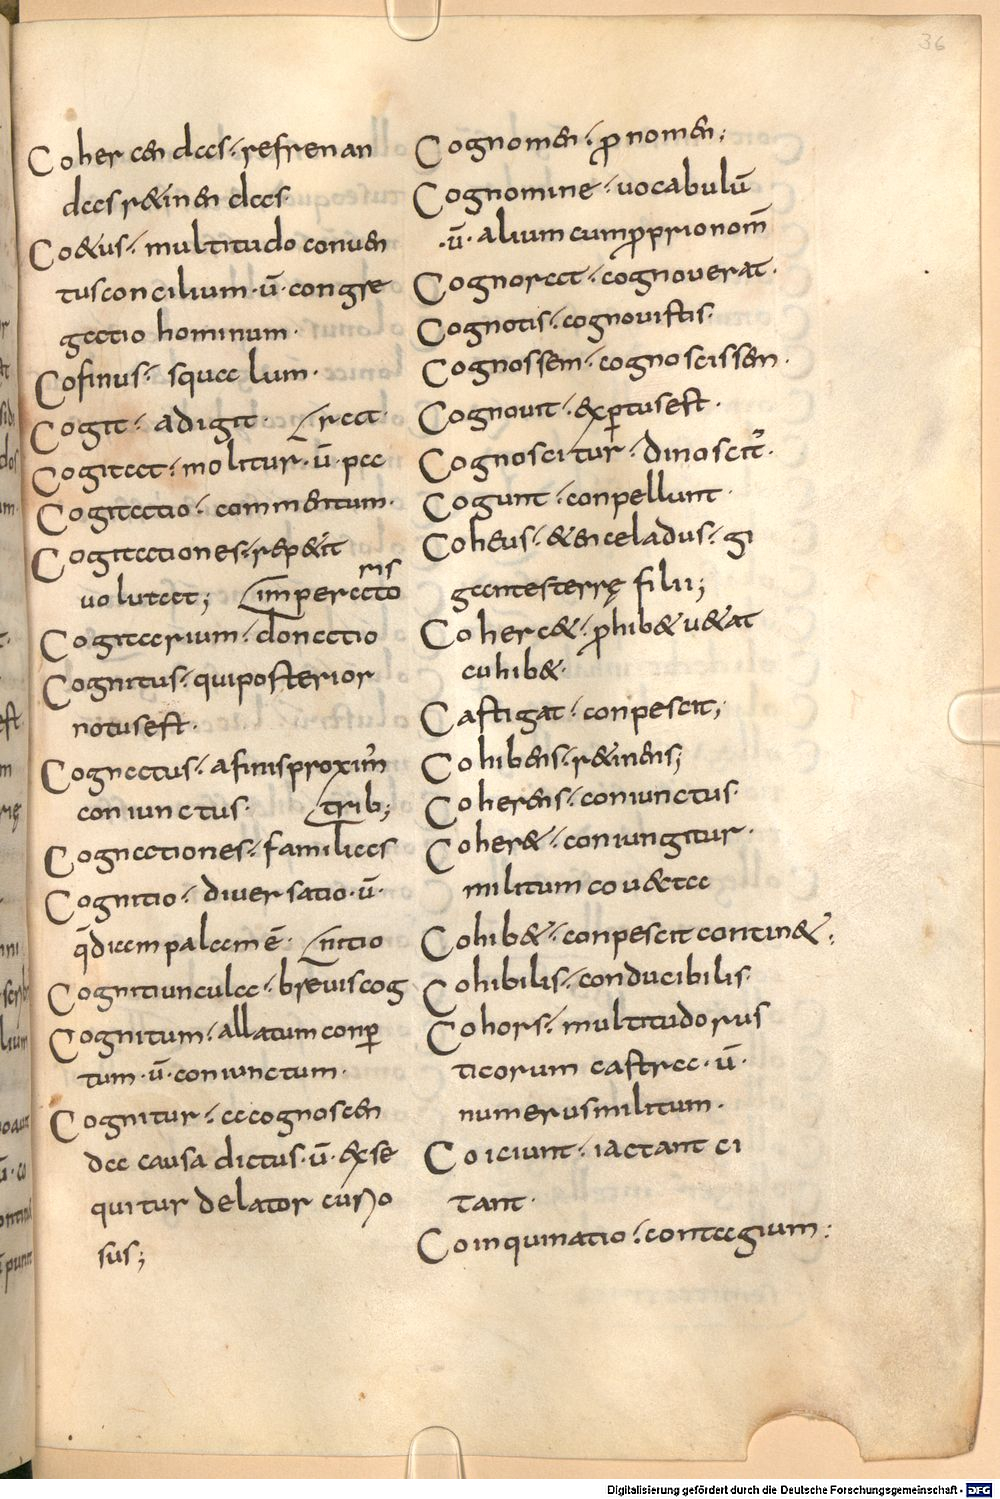 36
Cohercendas· refrenan
das r&inendas·
Co&us· multitudo conuen
tus concilium· ū· congre
gatio hominum·
Cofinus· squalum·
Cogit· adigit· rat·
Cogitat· molitur· ū· pa
Cogitatio· commentum·
Cogitationes· rep&it
ris
uolutat; imperato
Cogitarium· donatio
Cognitus· qui posterior
notus est·
Cognatus· afinis proxim̉
coniunctus· trib;
Cognationes· familias
Cognitio· diuersatio· ū·
q̄dicam palam ē· nitio
Cognitiuncula· breuis cog
Cognitum· allatum conꝑ
tum· ū· coniunctum·
Cognitur· a cognoscen
da causa dictus· ū· exse
quitur delator
sus;
Cognomen· ꝓnomen;
Cognomine· uocabulū
·ū· alium cum ꝓprio nom̄
Cognorat· cognouerat·
Cognotis· cognouistis·
Cognossem· cognoscissem·
Cognouit· exꝑtus est·
Cognoscitur· dinoscit̉·
Cogunt· conpellunt·
Coheus· &enceladus· gi
gantes terrę filii;
Coherc&· ꝓhib& u&at
cuhib&·
Castigat· conpescit;
Cohibens· r&inens;
Coherens· coniunctus·
Coher&· coniungitur·
militum cou&ta
Cohib&̉· conpescit contin&̉;
Cohibilis· conducibilis·
Cohors· multitudo rus
ticorum castra· ū·
numerus militum·
Coiciunt· iactant ci
tant·
Coinquinatio· contagium:
Digitalisierung gefördert durch die Deutsche Forschungsgemeinschaft - DFG